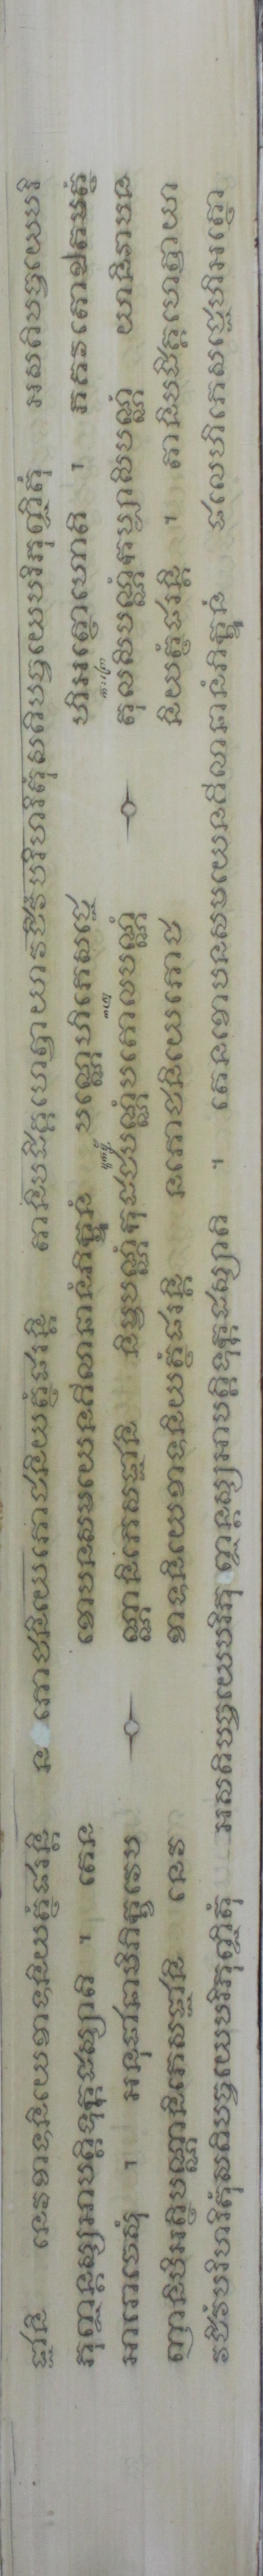 ជ្ជានិ នេវខាទនិយេខាទនិយត្ថំផរន្តិ ន ភោជនិយេភោជនិយត្ថំផរន្តិ តានិបដិគ្គហេត្វាយាវជីវំបរិហរិតុំសតិបច្ចយេបរិភុញ្ជិតុំ អសតិបច្ចយេបរិ
ភុញ្ជន្តស្សអាបត្តិទុក្កដស្សាតិ ។ តេន ខោបនសមយេនគិលានានំភិក្ខូនំ បណ្ណេហិភេសជ្ជេ ហិអត្ថោហោតិ ។ ភគវតោឯតមត្ថំ
អារោចេសុំ ។ អនុជានាមិភិក្ខវេប ណ្ណានិភេសជ្ជានិ និម្ពបណ្ណំកុដជបណ្ណំបកោលបណ្ណំ តុលសិបណ្ណំកប្បាសិបណ្ណំ យានិវាបន
ញានិបិអត្ថិបណ្ណានិភេសជ្ជានិ នេវ ខាទនិយេខាទនិយត្ថំផរន្តិ នភោជនិយេភោជ និយត្ថំផរន្តិ ។ តានិបដិគ្គហេត្វាយា
វជីវំបរិហរិតុំសតិបច្ចយេបរិភុញ្ជិតុំ អសតិបច្ចយេបរិភុ ញ្ជន្តស្សអាបត្តិទុក្កដស្សាតិ ។ តេនខោបនសមយេនគិលានានំភិក្ខូនំ ផលេហិភេសជ្ជេហិអត្ថោ